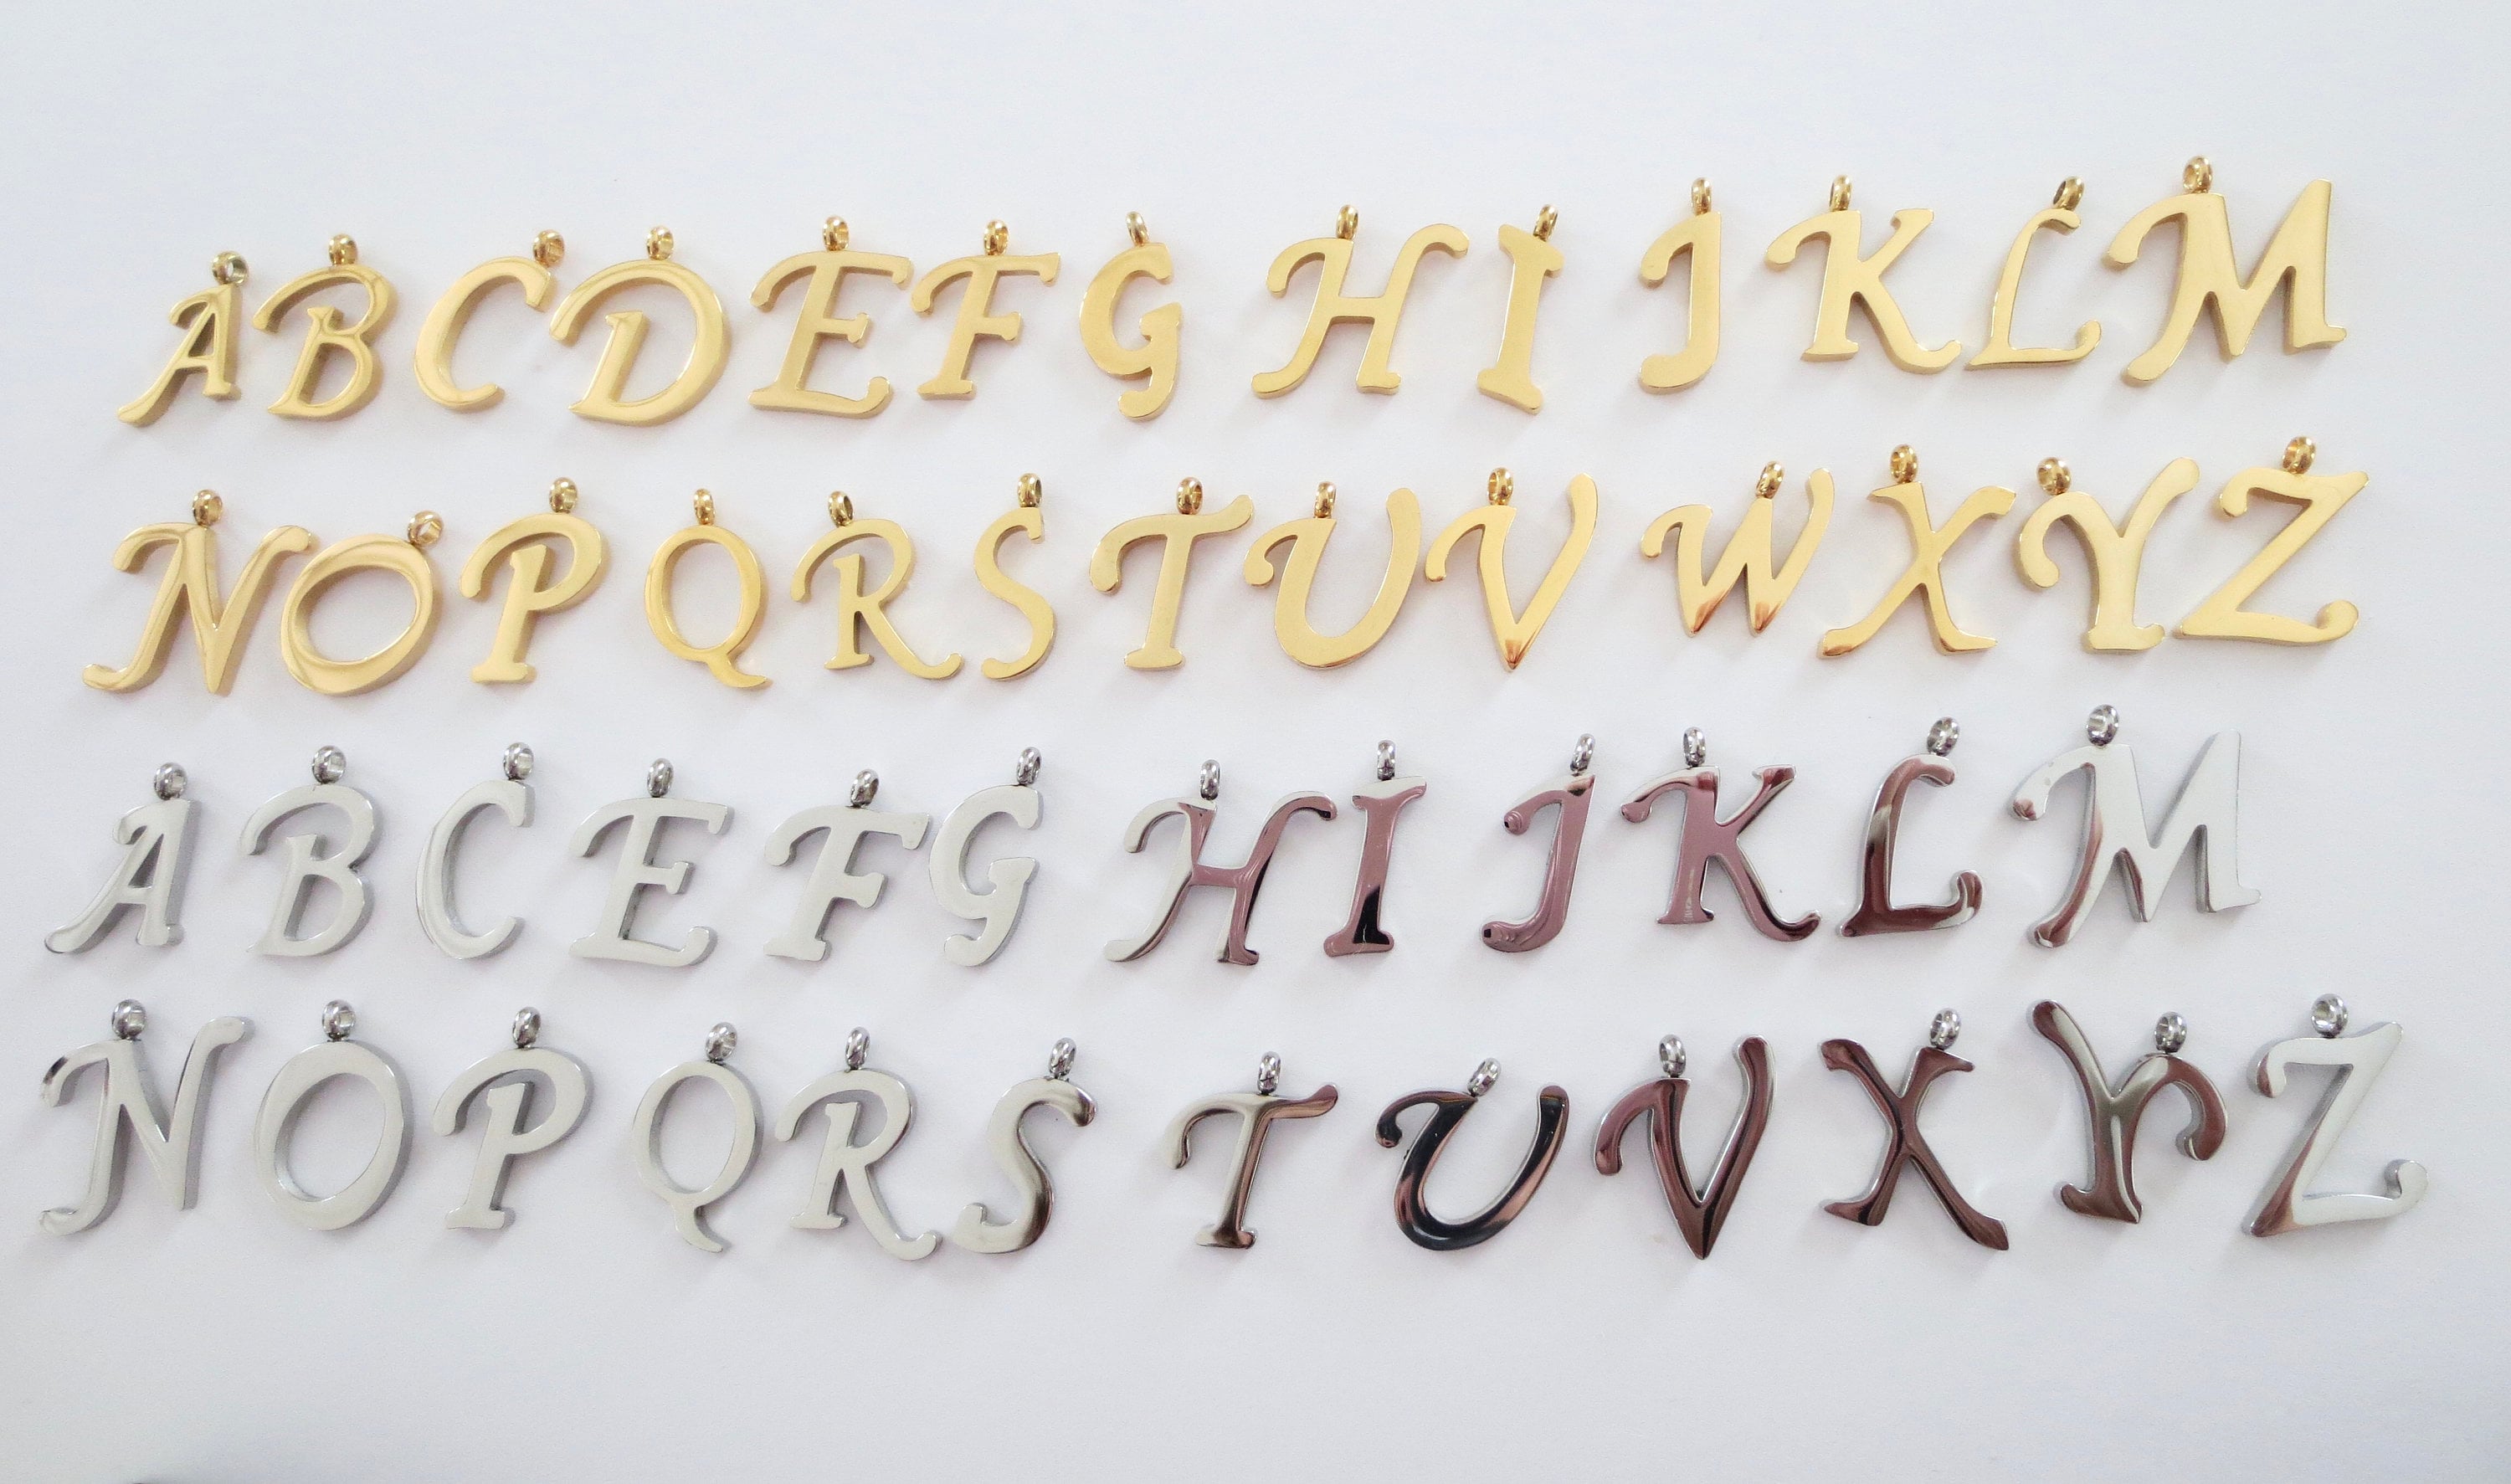 A B C D E F G H I J K L M
N O P Q R S T U V W X Y Z
A B C E F G H I J K L M
N O P Q R S T U V X Y Z